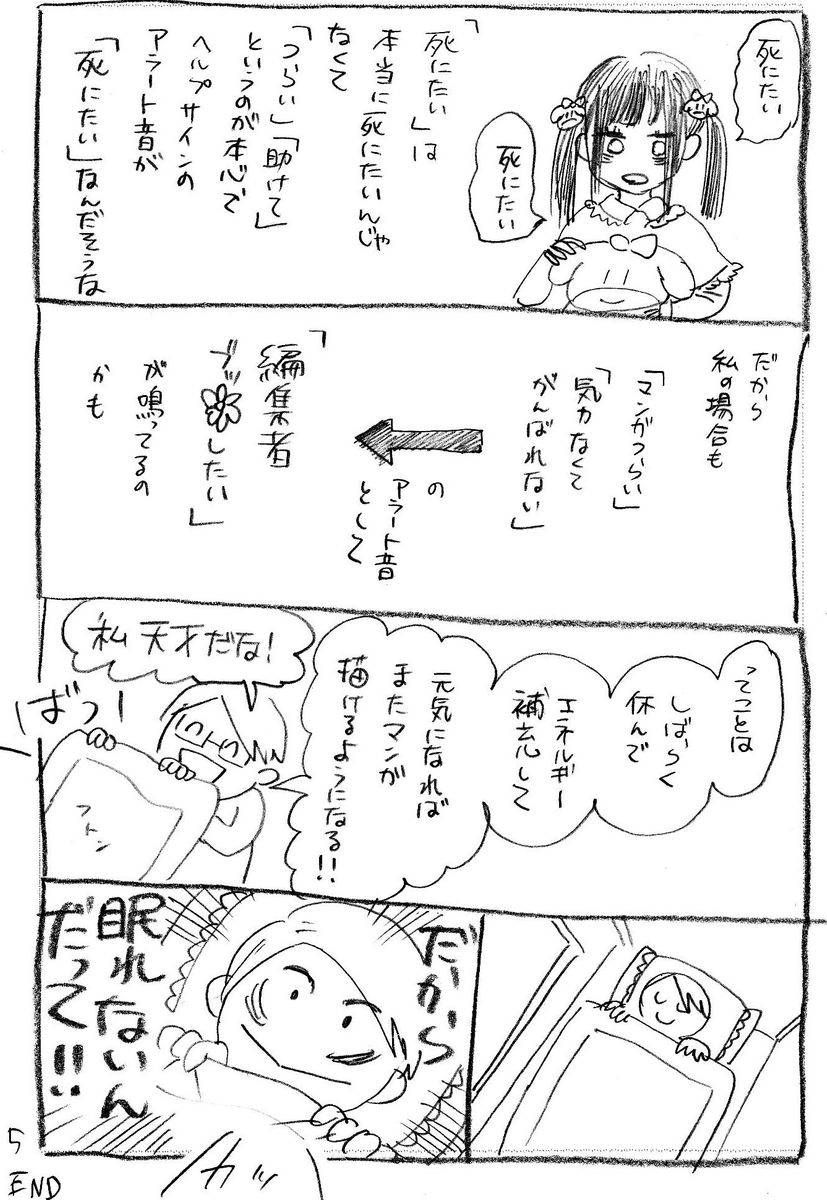 死にたい
死にたい
「死にたい」は
本当に死にたいんじゃ
なくて
「つらい」「助けて」
というのが本心で
ヘルプサインの
アラート音が
「死にたい」なんだそうな
だから
私の場合も
「マンガつらい」
「気力なくて
がんばれない」
の
アラート音
として
「編集者
ブッしたい」
が鳴ってるの
かも
ってことは
しばらく
休んで
エネルギー
補充して
元気になれば
またマンガ
描けるようになる!!
私天才だな!
ばっ
フトン
だから
眠れないん
だって!!
カッ
5
END